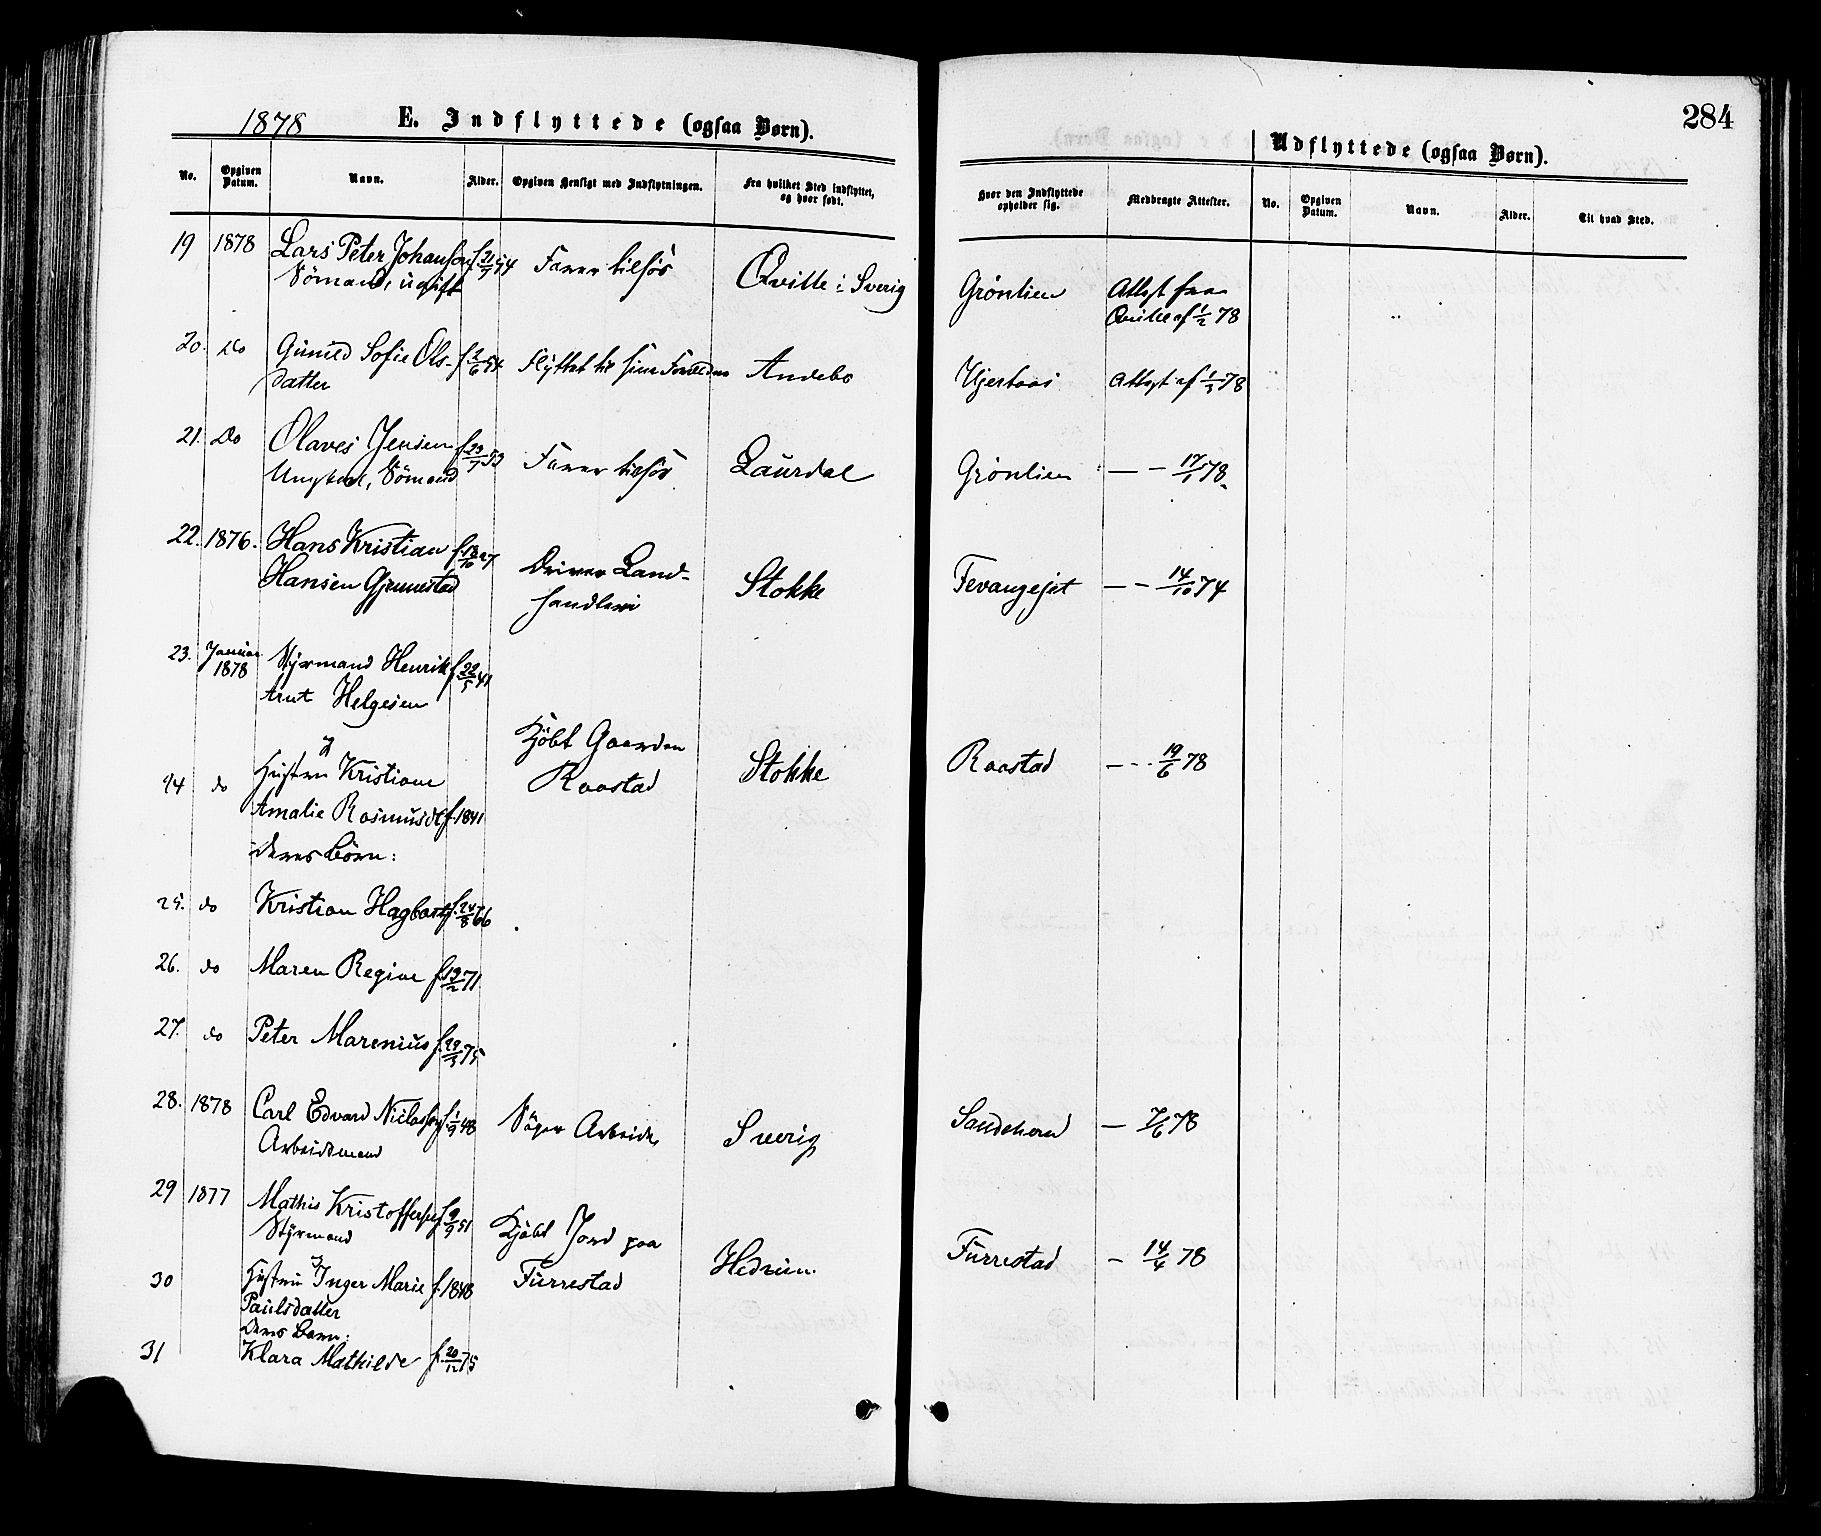 284
1878 E. Indflyttede (ogsaa Børn).
Udflyttede (ogsaa Børn).
No. Opgiven Datum. Navn. Alder. Opgiven Hensigt med Indflytningen. Fra hvilket Sted indflyttet, og hvor født.
Hvor den Indflyttede opholder sig. Medbragte Attester. No. Opgiven Datum. Navn. Alder. Til hvad Sted.
19 1878 Lars Peter Johansen f 21/7 54 Farer tilsös Qville i Sverig Grönlien Attest fra
Sömand, ugift Qville af 1/2 78
20. Do Gunild Sofie Ols- f 2/6 54 Flyttet til sine Forældre Andebo Attest af 1/3 78
datter
21. Do Olaves Jensen f 23/7 53 Farer tilsös Laurdal Grönlien — — 17/1 78.
Ungkarl, Sömand
22. 1876. Hans Kristian f 18/10 27 Driver Land- Stokke — — 14/10 74
Hansen Gjennestad handleri
23. Januar 1878 Styrmand Henrik f 22/5 41
Arnt Helgesen
Kjöbt Gaarden Stokke Raastad — - - 19/6 78
Raastad
24 do Hustru Kristiane
Amalie Rasmusdt f. 1841
deres Börn:
25. do Kristian Hagbart f. 24/8 66
26. do Maren Regine f. 19/2 71
27. do Peter Marenius f. 29/3 75
28. 1878 Carl Edvard Niclassen f 1/9 48 Söger Arbeide Sverig — 7/6 78
Arbeidsmand
29 1877 Mathis Kristoffersen f 9/9 51
Styrmand
Kjöbt Jord paa Hedrum. Furrestad — 14/4 78
Furrestad
30 Hustru Inger Marie f. 1848
Paulsdatter
Deres Barn:
31 Klara Mathilde f. 20/12 75